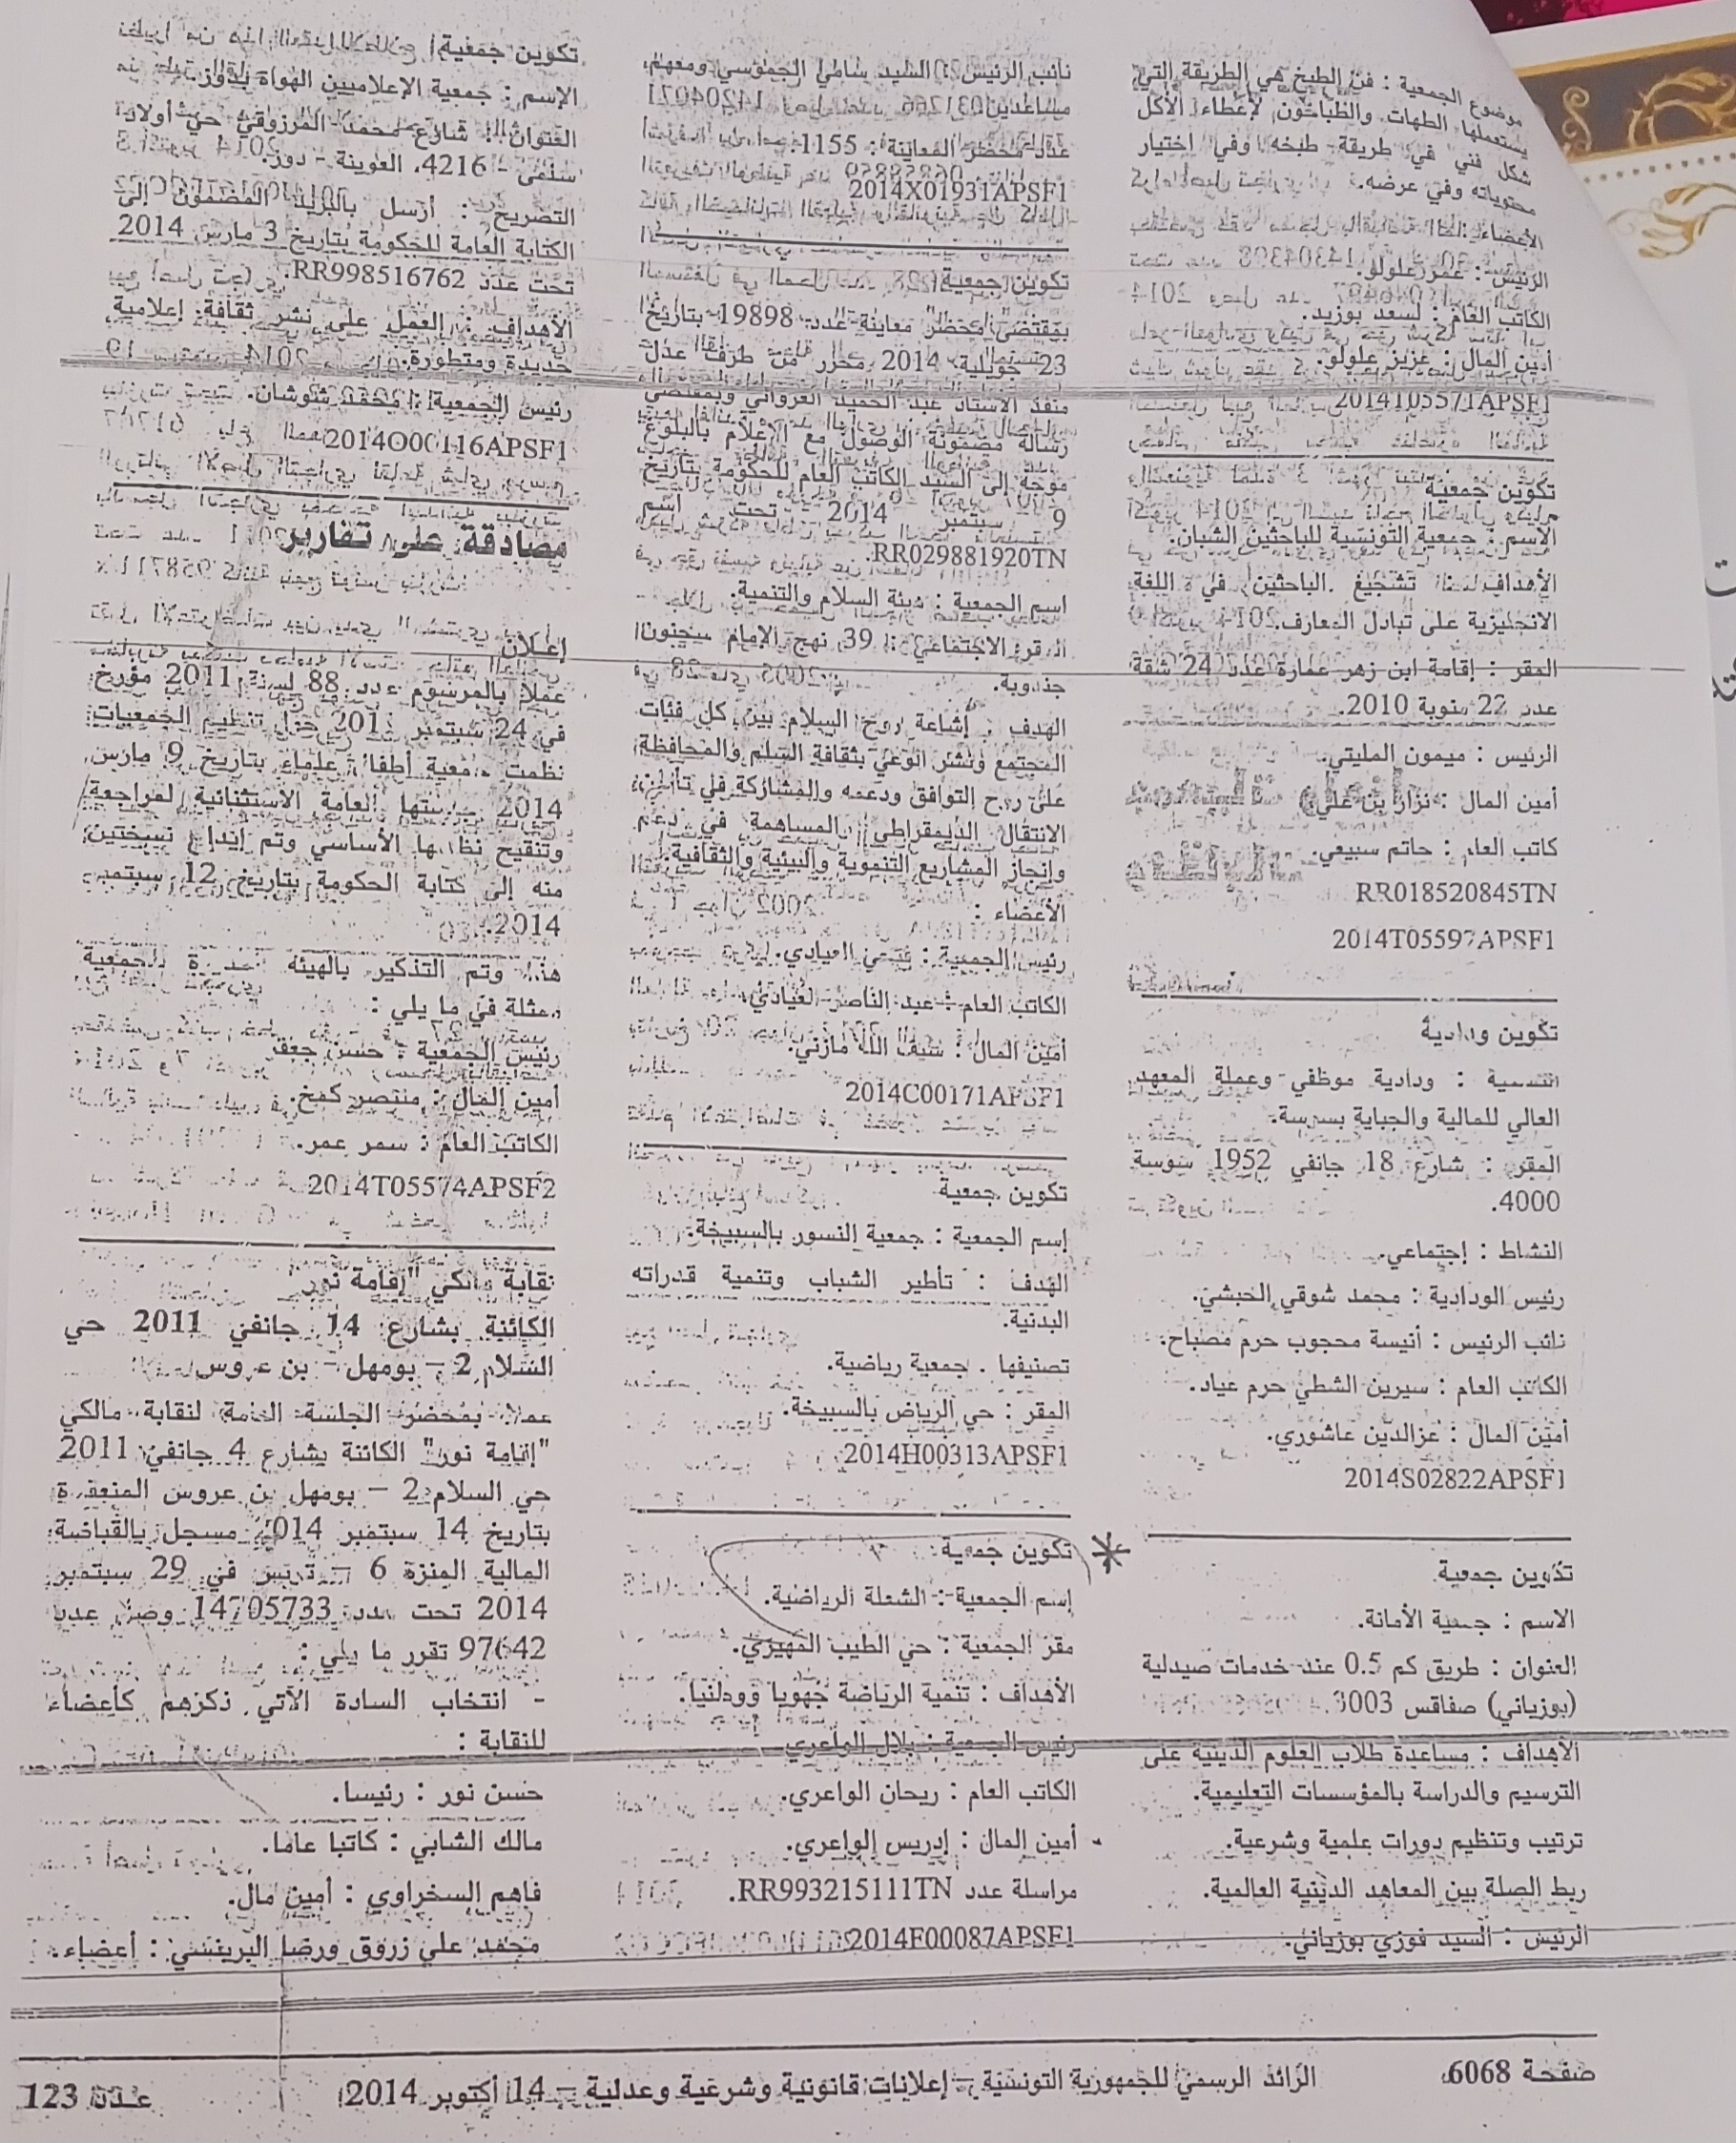 موضوع الجمعية : فن الطبخ هي الطريقة التي
يستعملها الطهات والطباخون لإعطاء الأكل
شكل فني في طريقة طبخه وفي اختيار
محتوياته وفي عرضه.
الأعضاء :
الرئيس : عمر علولو.
الكاتب العام : لسعد بوزيد.
أمين المال : عزيز علولو.
2014T05571APSF1
تكوين جمعية
الاسم : جمعية التونسية للباحثين الشبان.
الأهداف : تشجيع الباحثين في اللغة
الانجليزية على تبادل المعارف.
المقر : إقامة ابن زهر عمارة عدد 24 شقة
عدد 22 منوبة 2010.
الرئيس : ميمون المليتي.
أمين المال : نزار بن علي
كاتب العام : حاتم سبيعي.
RR018520845TN
2014T05597APSF1
تكوين ودادية
التسمية : ودادية موظفي وعملة المعهد
العالي للمالية والجباية بسوسة.
المقر : شارع 18 جانفي 1952 سوسة
4000.
النشاط : إجتماعي.
رئيس الودادية : محمد شوقي الحبشي.
نائب الرئيس : أنيسة محجوب حرم مصباح.
الكاتب العام : سيرين الشطي حرم عياد.
أمين المال : عزالدين عاشوري.
2014S02822APSF1
تكوين جمعية
الاسم : جمعية الأمانة.
العنوان : طريق كم 0.5 عند خدمات صيدلية
(بوزياني) صفاقس 3003.
الأهداف : مساعدة طلاب العلوم الدينية على
الترسيم والدراسة بالمؤسسات التعليمية.
ترتيب وتنظيم دورات علمية وشرعية.
ربط الصلة بين المعاهد الدينية العالمية.
الرئيس : السيد فوزي بوزياني.
نائب الرئيس : السيد سامي الجموسي ومعهم
عدد محضر المعاينة : 1155.
2014X01931APSF1
تكوين جمعية
بمقتضى محضر معاينة عدد 19898 بتاريخ
23 جويلية 2014 محرر من طرف عدل
منفذ الأستاذ عبد الحميد الغرواني وبمقتضى
رسالة مضمونة الوصول مع الإعلام بالبلوغ
موجه إلى السيد الكاتب العام للحكومة بتاريخ
9 سبتمبر 2014 تحت اسم
RR029881920TN.
اسم الجمعية : هيئة السلام والتنمية.
المقر الاجتماعي : 39 نهج الإمام سحنون
جندوبة.
الهدف : إشاعة روح السلام بين كل فئات
المجتمع ونشر الوعي بثقافة السلم والمحافظة
على روح التوافق ودعمه والمشاركة في
الانتقال الديمقراطي والمساهمة في دعم
وإنجاز المشاريع التنموية والبيئية والثقافية.
الأعضاء :
رئيس الجمعية : فتحي العيادي.
الكاتب العام : عبد الناصر العيادي.
أمين المال : سيف الله مازني.
2014C00171APSF1
تكوين جمعية
إسم الجمعية : جمعية النسور بالسبيخة.
الهدف : تأطير الشباب وتنمية قدراته
البدنية.
تصنيفها : جمعية رياضية.
المقر : حي الرياض بالسبيخة.
2014H00313APSF1
تكوين جمعية *
إسم الجمعية : الشعلة الرياضية.
مقر الجمعية : حي الطيب المهيري.
الأهداف : تنمية الرياضة جهويا ووطنيا.
رئيس الجمعية : بلال الواعري
الكاتب العام : ريحان الواعري.
أمين المال : إدريس الواعري.
مراسلة عدد RR993215111TN.
2014F00087APSF1
تكوين جمعية
الإسم : جمعية الإعلاميين الهواة بدوز.
العنوان : شارع محمد المرزوقي حي أولاد
سلمى - 4216، العوينة - دوز.
التصريح : أرسل بالبريد المضمون إلى
الكتابة العامة للحكومة بتاريخ 3 مارس 2014
تحت عدد RR998516762.
الأهداف : العمل على نشر ثقافة إعلامية
جديدة ومتطورة.
رئيس الجمعية : محمد شوشان.
2014O00116APSF1
مصادقة على تقارير
إعلان
عملا بالمرسوم عدد 88 لسنة 2011 مؤرخ
في 24 سبتمبر 2011 حول تنظيم الجمعيات
نظمت جمعية أطفال علماء بتاريخ 9 مارس
2014 جلستها العامة الاستثنائية لمراجعة
وتنقيح نظامها الأساسي وتم إيداع نسختين
منه إلى كتابة الحكومة بتاريخ 12 سبتمبر
2014.
هذا وتم التذكير بالهيئة المديرة للجمعية
ممثلة في ما يلي :
رئيس الجمعية : حسن جعفر
أمين المال : منتصر كمخ.
الكاتب العام : سمر عمر.
2014T05574APSF2
نقابة مالكي "إقامة نور"
الكائنة بشارع 14 جانفي 2011 حي
السلام 2 – بومهل – بن عروس
عملا بمحضر الجلسة العامة لنقابة مالكي
"إقامة نور" الكائنة بشارع 4 جانفي 2011
حي السلام 2 – بومهل بن عروس المنعقدة
بتاريخ 14 سبتمبر 2014 مسجل بالقباضة
المالية المنزه 6 – تونس في 29 سبتمبر
2014 تحت عدد 14705733 وصل عدد
97642 تقرر ما يلي :
- انتخاب السادة الآتي ذكرهم كأعضاء
للنقابة :
حسن نور : رئيسا.
مالك الشابي : كاتبا عاما.
فاهم السخراوي : أمين مال.
محمد علي زروق ورضا البرينسي : أعضاء.
صفحة 6068
الرائد الرسمي للجمهورية التونسية – إعلانات قانونية وشرعية وعدلية – 14 أكتوبر 2014
عـدد 123